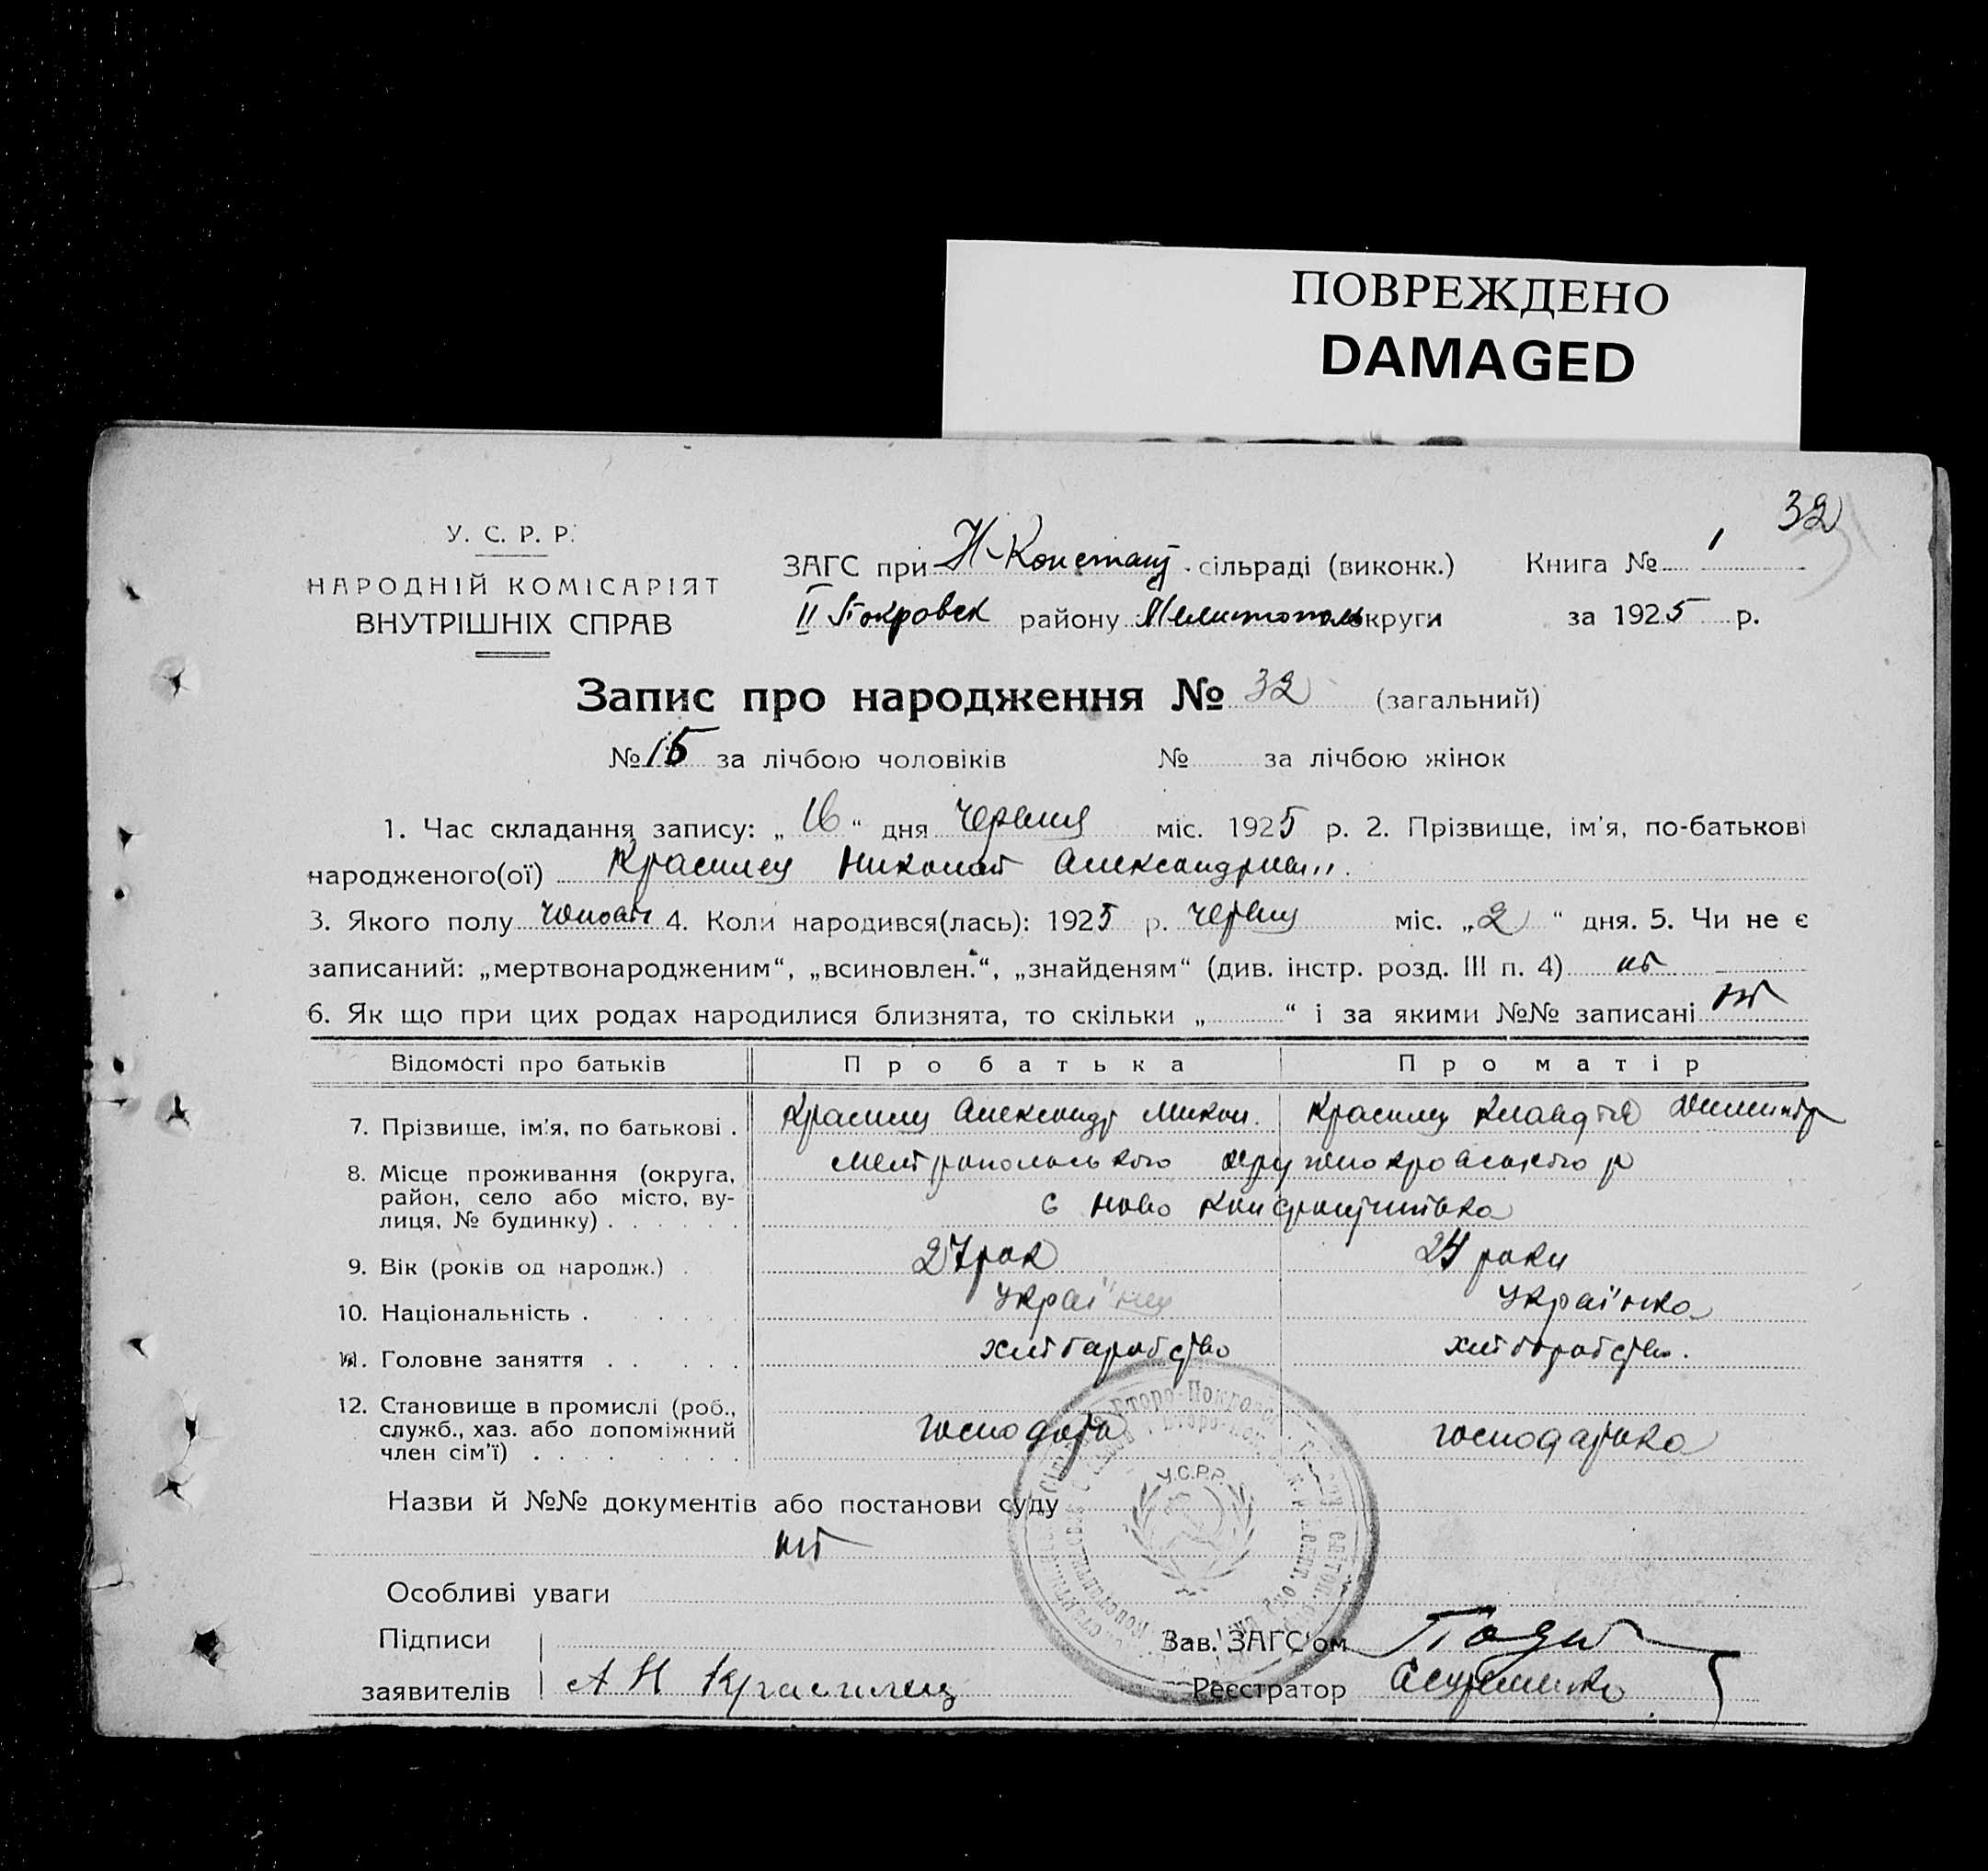 ПОВРЕЖДЕНО
DAMAGED
32
У. С. Р. Р.
НАРОДНІЙ КОМІСАРІЯТ
ВНУТРІШНІХ СПРАВ
ЗАГС при Н-Констант сільраді (виконк.) Книга № 1
II Покровск району Мелитополь округи за 1925 р.
Запис про народження № 32 (загальний)
№ 15 за лічбою чоловіків № за лічбою жінок
1. Час складання запису: „ 16 “ дня червня міс. 1925 р. 2. Прізвище, ім’я, по-батькові
народженого(ої) Красилец Николай Александрив
3. Якого полу чоловіч 4. Коли народився(лась): 1925 р. червня міс. „2 “ дня. 5. Чи не є
записаний: „мертвонародженим“, „всиновлен.“, „знайденям“ (див. інстр. розд. III п. 4) ні
6. Як що при цих родах народилися близнята, то скільки „ “ і за якими №№ записані ні
Відомості про батьків Про батька Про матір
7. Прізвище, ім’я, по батькові . Красилец Александр Микол. Красилец Клавдія
8. Місце проживання (округа,
район, село або місто, ву-
лиця, № будинку) . . . . . . с Ново
9. Вік (років од народж.) . 27 рок 24 роки
10. Національність . . . . . Українец Українка
11. Головне заняття . . . . . хліборобство хліборобство.
12. Становище в промислі (роб.,
служб., хаз. або допоміжний
член сім’ї) . . . . . . . . господарь господарька
У.С.Р.Р.
Назви й №№ документів або постанови суду
ні
Особливі уваги
Підписи Зав. ЗАГС’ом
заявителів А Н Красилец Реєстратор